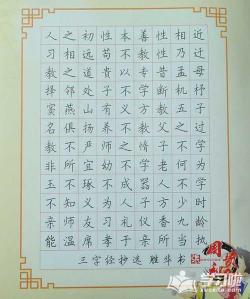 人之初性本善性相近
习相远苟不教性乃迁
教之道贵以专昔孟母
择邻处子不学断机杼
窦燕山有义方教五子
名俱扬养不教父之过
教不严师之惰子不学
非所宜幼不学老何为
玉不琢不成器人不学
不知义为人子方少时
亲师友习礼仪香九龄
能温席孝于亲所当执
三字经抄选 胜斗书
学习啦